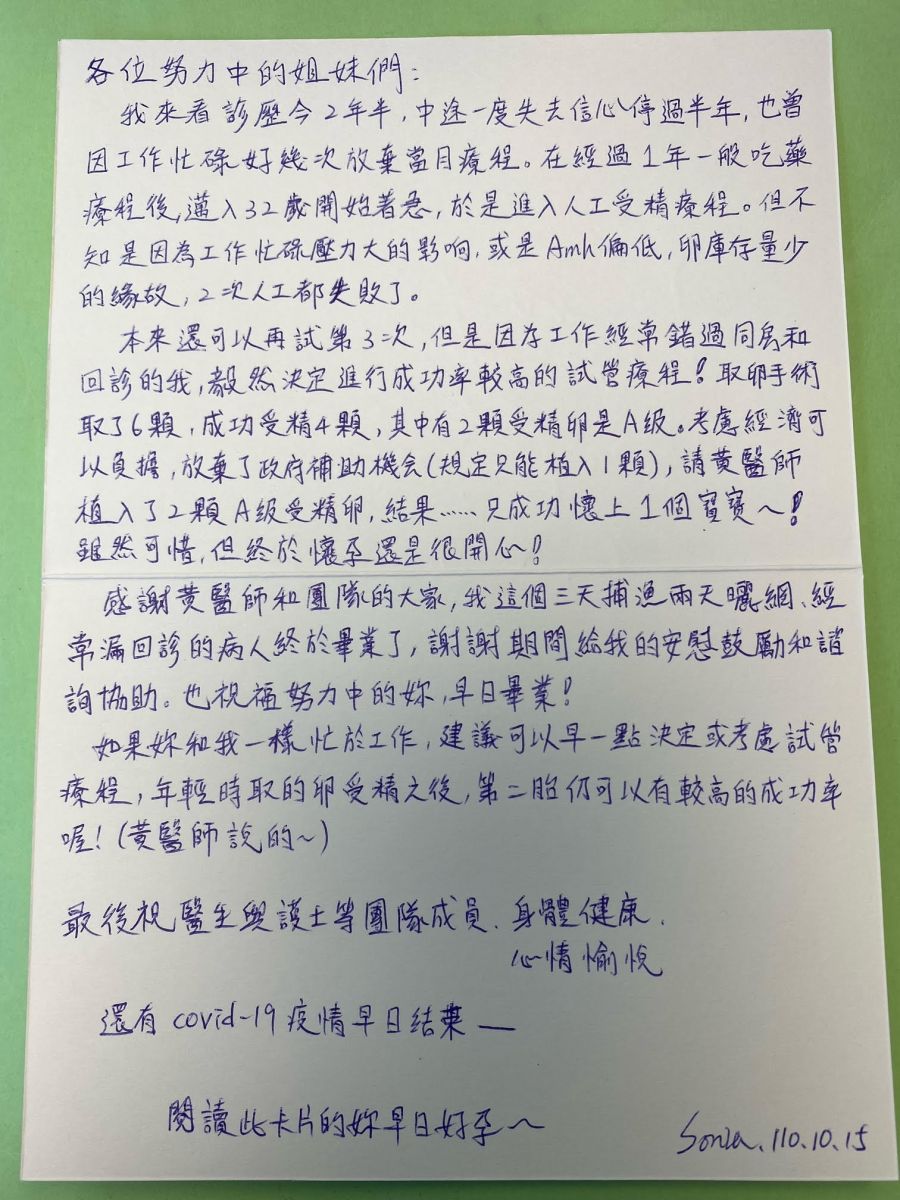 各位努力中的姐妹們：
我來看診歷今2年半，中途一度失去信心停過半年，也曾
因工作忙碌好幾次放棄當月療程。在經過1年一般吃藥
療程後，邁入32歲開始著急，於是進入人工受精療程。但不
知是因為工作忙碌壓力大的影响，或是Amh偏低，卵庫存量少
的緣故，2次人工都失敗了。
本來還可以再試第3次，但是因為工作經常錯過同房和
回診的我，毅然決定進行成功率較高的試管療程！取卵手術
取了6顆，成功受精4顆，其中有2顆受精卵是A級。考慮經濟可
以負擔，放棄了政府補助機会(規定只能植入1顆)，請黃醫師
植入了2顆A級受精卵，結果……只成功懷上1個寶寶～！
雖然可惜，但終於懷孕還是很開心！
感謝黃醫師和團隊的大家，我這個三天捕漁兩天曬網、經
常漏回診的病人終於畢業了，謝謝期間給我的安慰鼓勵和諮
詢協助。也祝福努力中的妳，早日畢業！
如果妳和我一樣忙於工作，建議可以早一點決定或考慮試管
療程，年輕時取的卵受精之後，第二胎仍可以有較高的成功率
喔！(黃醫師說的～)
最後祝醫生與護士等團隊成員、身體健康、
心情愉悅
還有 covid-19 疫情早日結束—
閱讀此卡片的妳早日好孕～
Sonia. 110.10.15